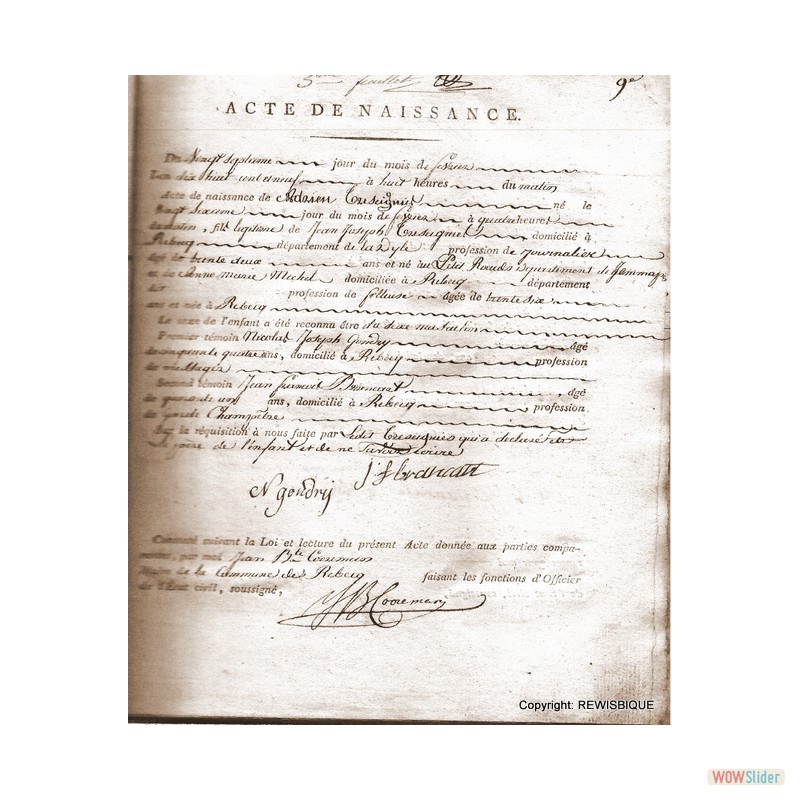 5me feuillet
9e
ACTE DE NAISSANCE.
Du Vingt Septieme jour du mois de fevrier
L'an dix huit cent neuf à huit heures du matin
Acte de naissance de Adrien Cresseignies né le
Vingt Sixieme jour du mois de fevrier à quatre heures
du matin, fils legitime de Jean Joseph domicilié à
Rebecq département de la Dyle profession de journalier
âgé de trente deux ans et né au Petit Rœulx Departement de Jemmap
et de Anne Marie Michel domiciliée à Rebecq département
profession de fileuse âgée de trente six
ans et née à Rebecq
Le sexe de l'enfant a été reconnu être du sexe masculin
Premier témoin Nicolas Joseph Gondry âgé
de cinquante quatre ans, domicilié à Rebecq profession
de
Second témoin Jean , âgé
de quarante ans, domicilié à Rebecq profession
de garde Champêtre
Sur la réquisition à nous faite par Ledit qui a declaré être
le père de l'enfant et de ne Savoir écrire
N gondrij
Constaté suivant la Loi et lecture du présent Acte donnée aux parties compa-
rantes, par moi Jean Bte Cooremans
Maire de la Commune de Rebecq faisant les fonctions d'Officier
de l'État civil, soussigné,
JB Cooremans
Copyright: REWISBIQUE
WOWSlider